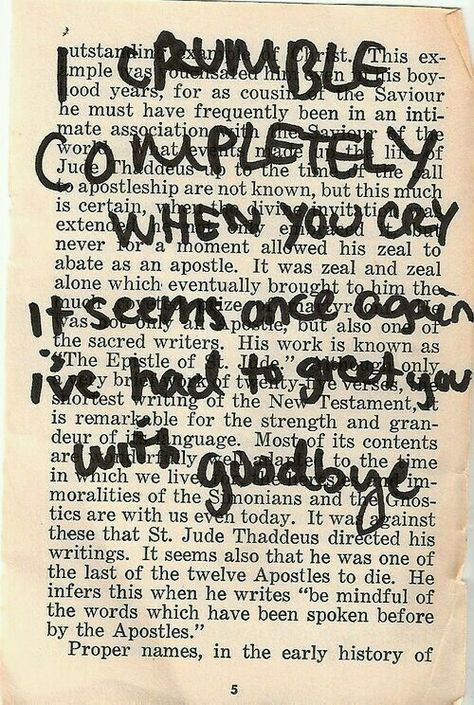 I CRUMBLE
COMPLETELY
WHEN YOU CRY
it seems once again
i've had to greet you
with goodbye
outstanding example of Christ. This ex-
ample was vouchsafed him even in his boy-
hood years, for as cousin of the Saviour
he must have frequently been in an inti-
mate association with the Saviour of the
world. What events made up the life of
Jude Thaddeus up to the time of the call
to apostleship are not known, but this much
is certain, when the divine invitation was
extended only but
never for a moment allowed his zeal to
abate as an apostle. It was zeal and zeal
alone which eventually brought to him the
much prize martyr
was not only an Apostle, but also one of
the sacred writers. His work is known as
"The Epistle of St. Jude." only
very brief work of twenty-five verses,
shortest writing of the New Testament, it
is remarkable for the strength and gran-
deur of its language. Most of its contents
are wonderfully well adapted to the time
in which we live, for the and im-
moralities of the Simonians and the Gnos-
tics are with us even today. It was against
these that St. Jude Thaddeus directed his
writings. It seems also that he was one of
the last of the twelve Apostles to die. He
infers this when he writes "be mindful of
the words which have been spoken before
by the Apostles."
Proper names, in the early history of
5